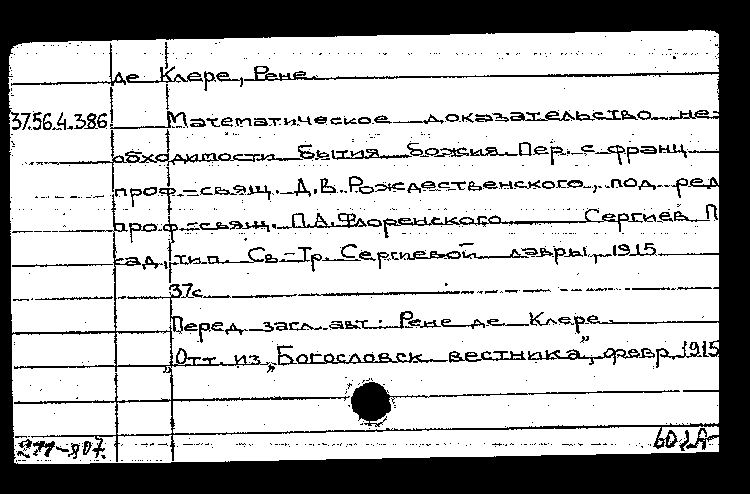 де Клере, Рене.
37.56.4.386 Математическое доказательство не=
обходимости бытия божия. Пер. с франц
проф.-свящ. Д.В. Рождественского, под ред
проф.-свящ. П.А. Флоренского Сергиев П
сад, тип. Св.-Тр. Сергиевой лавры, 1915
37с
Перед загл. авт: Рене де Клере.
„Отт. из „Богословск. вестника", февр 1915